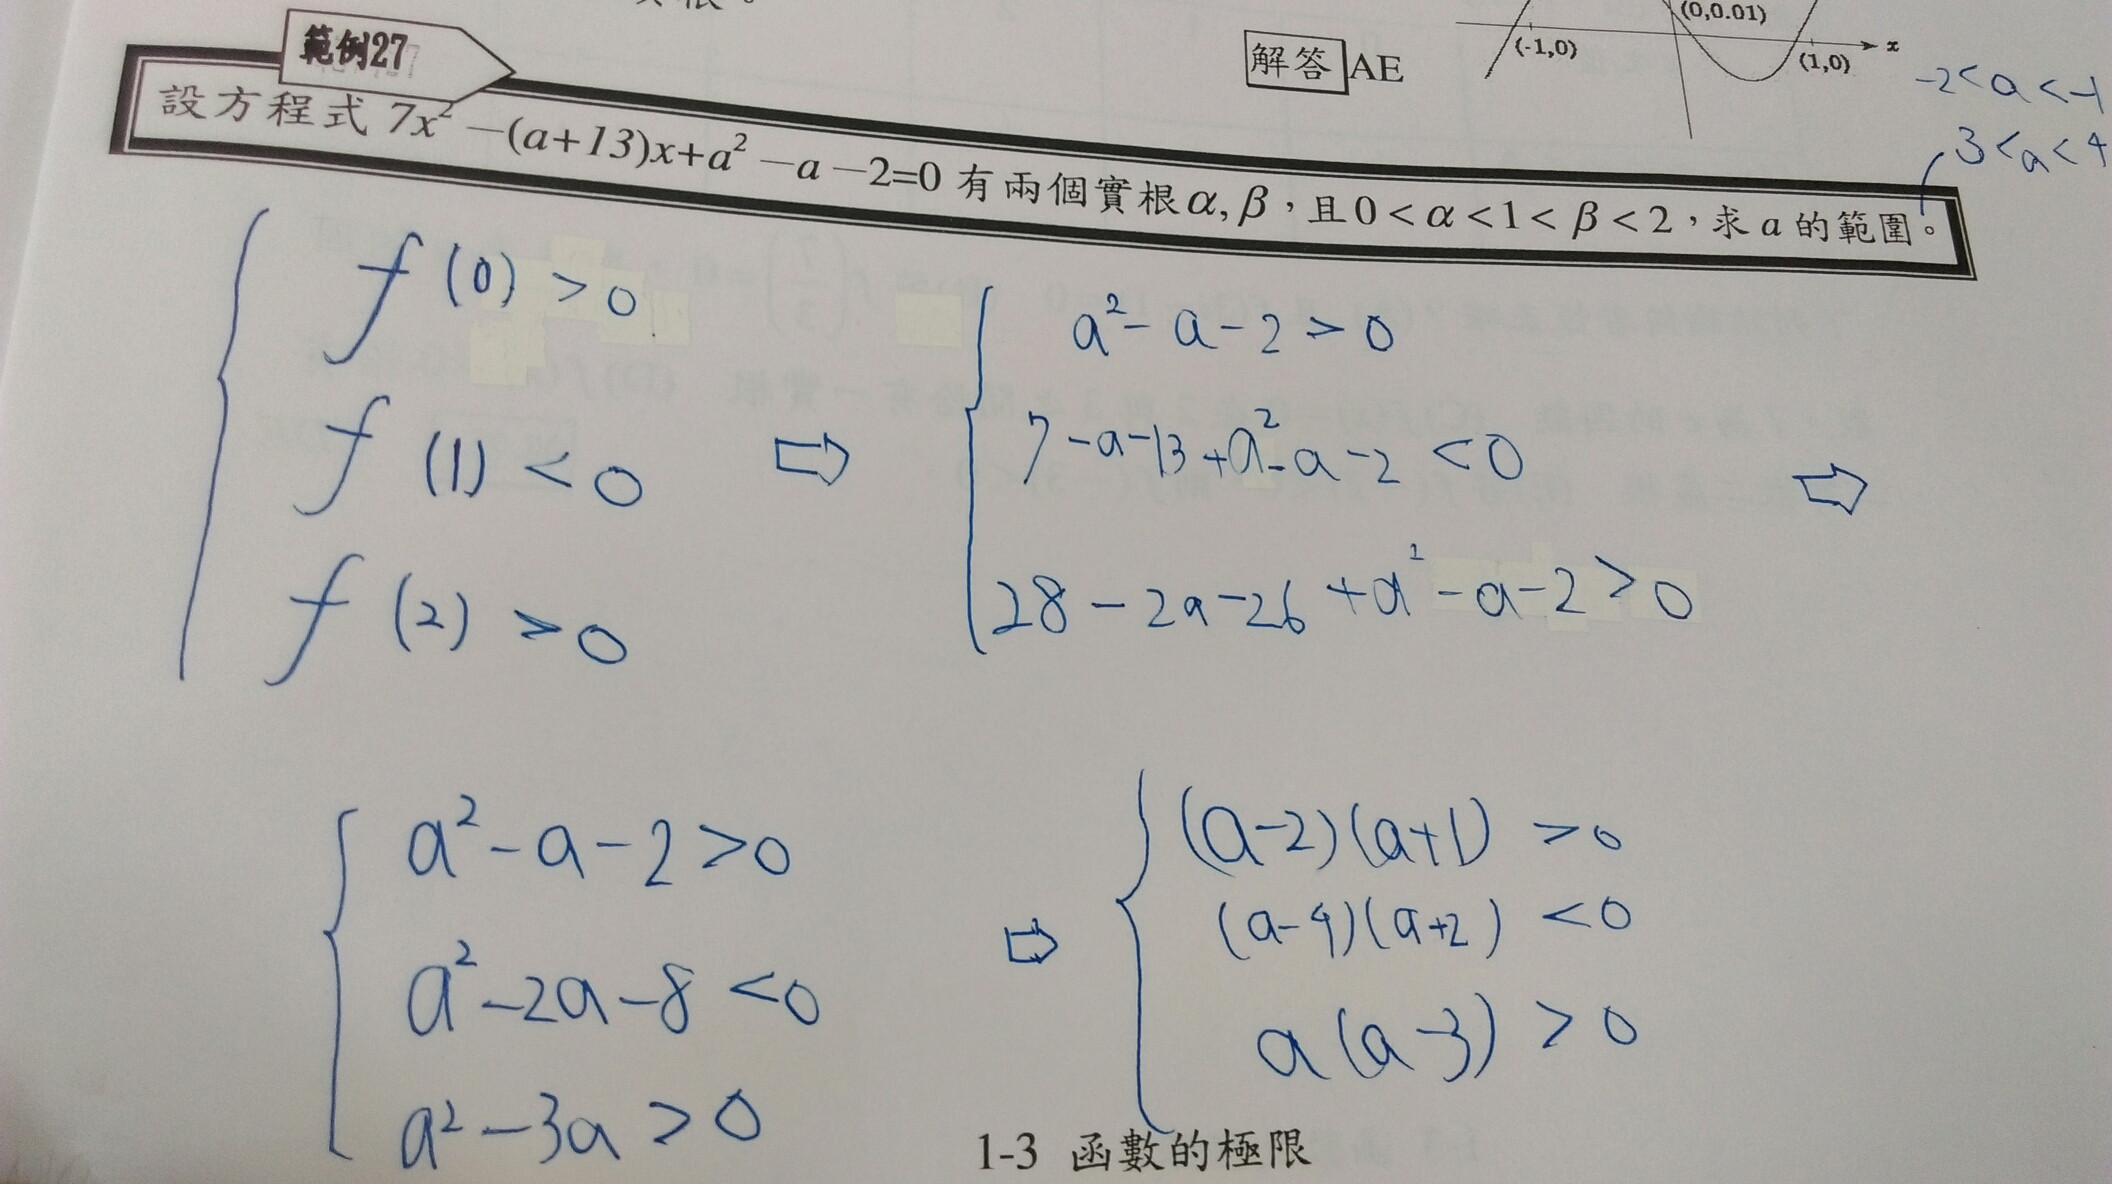 範例27
解答 AE
(0,0.01)
(-1,0)
(1,0)
x
-2<a<-1
3<a<4
設方程式 7x²－(a+13)x+a²－a－2=0 有兩個實根α, β，且0<α<1<β<2，求a的範圍。
f(0)>0
f(1)<0
f(2)>0
⇨
a²-a-2>0
7-a-13+a²-a-2<0
28-2a-26+a²-a-2>0
⇨
a²-a-2>0
a²-2a-8<0
a²-3a>0
⇨
(a-2)(a+1)>0
(a-4)(a+2)<0
a(a-3)>0
1-3 函數的極限